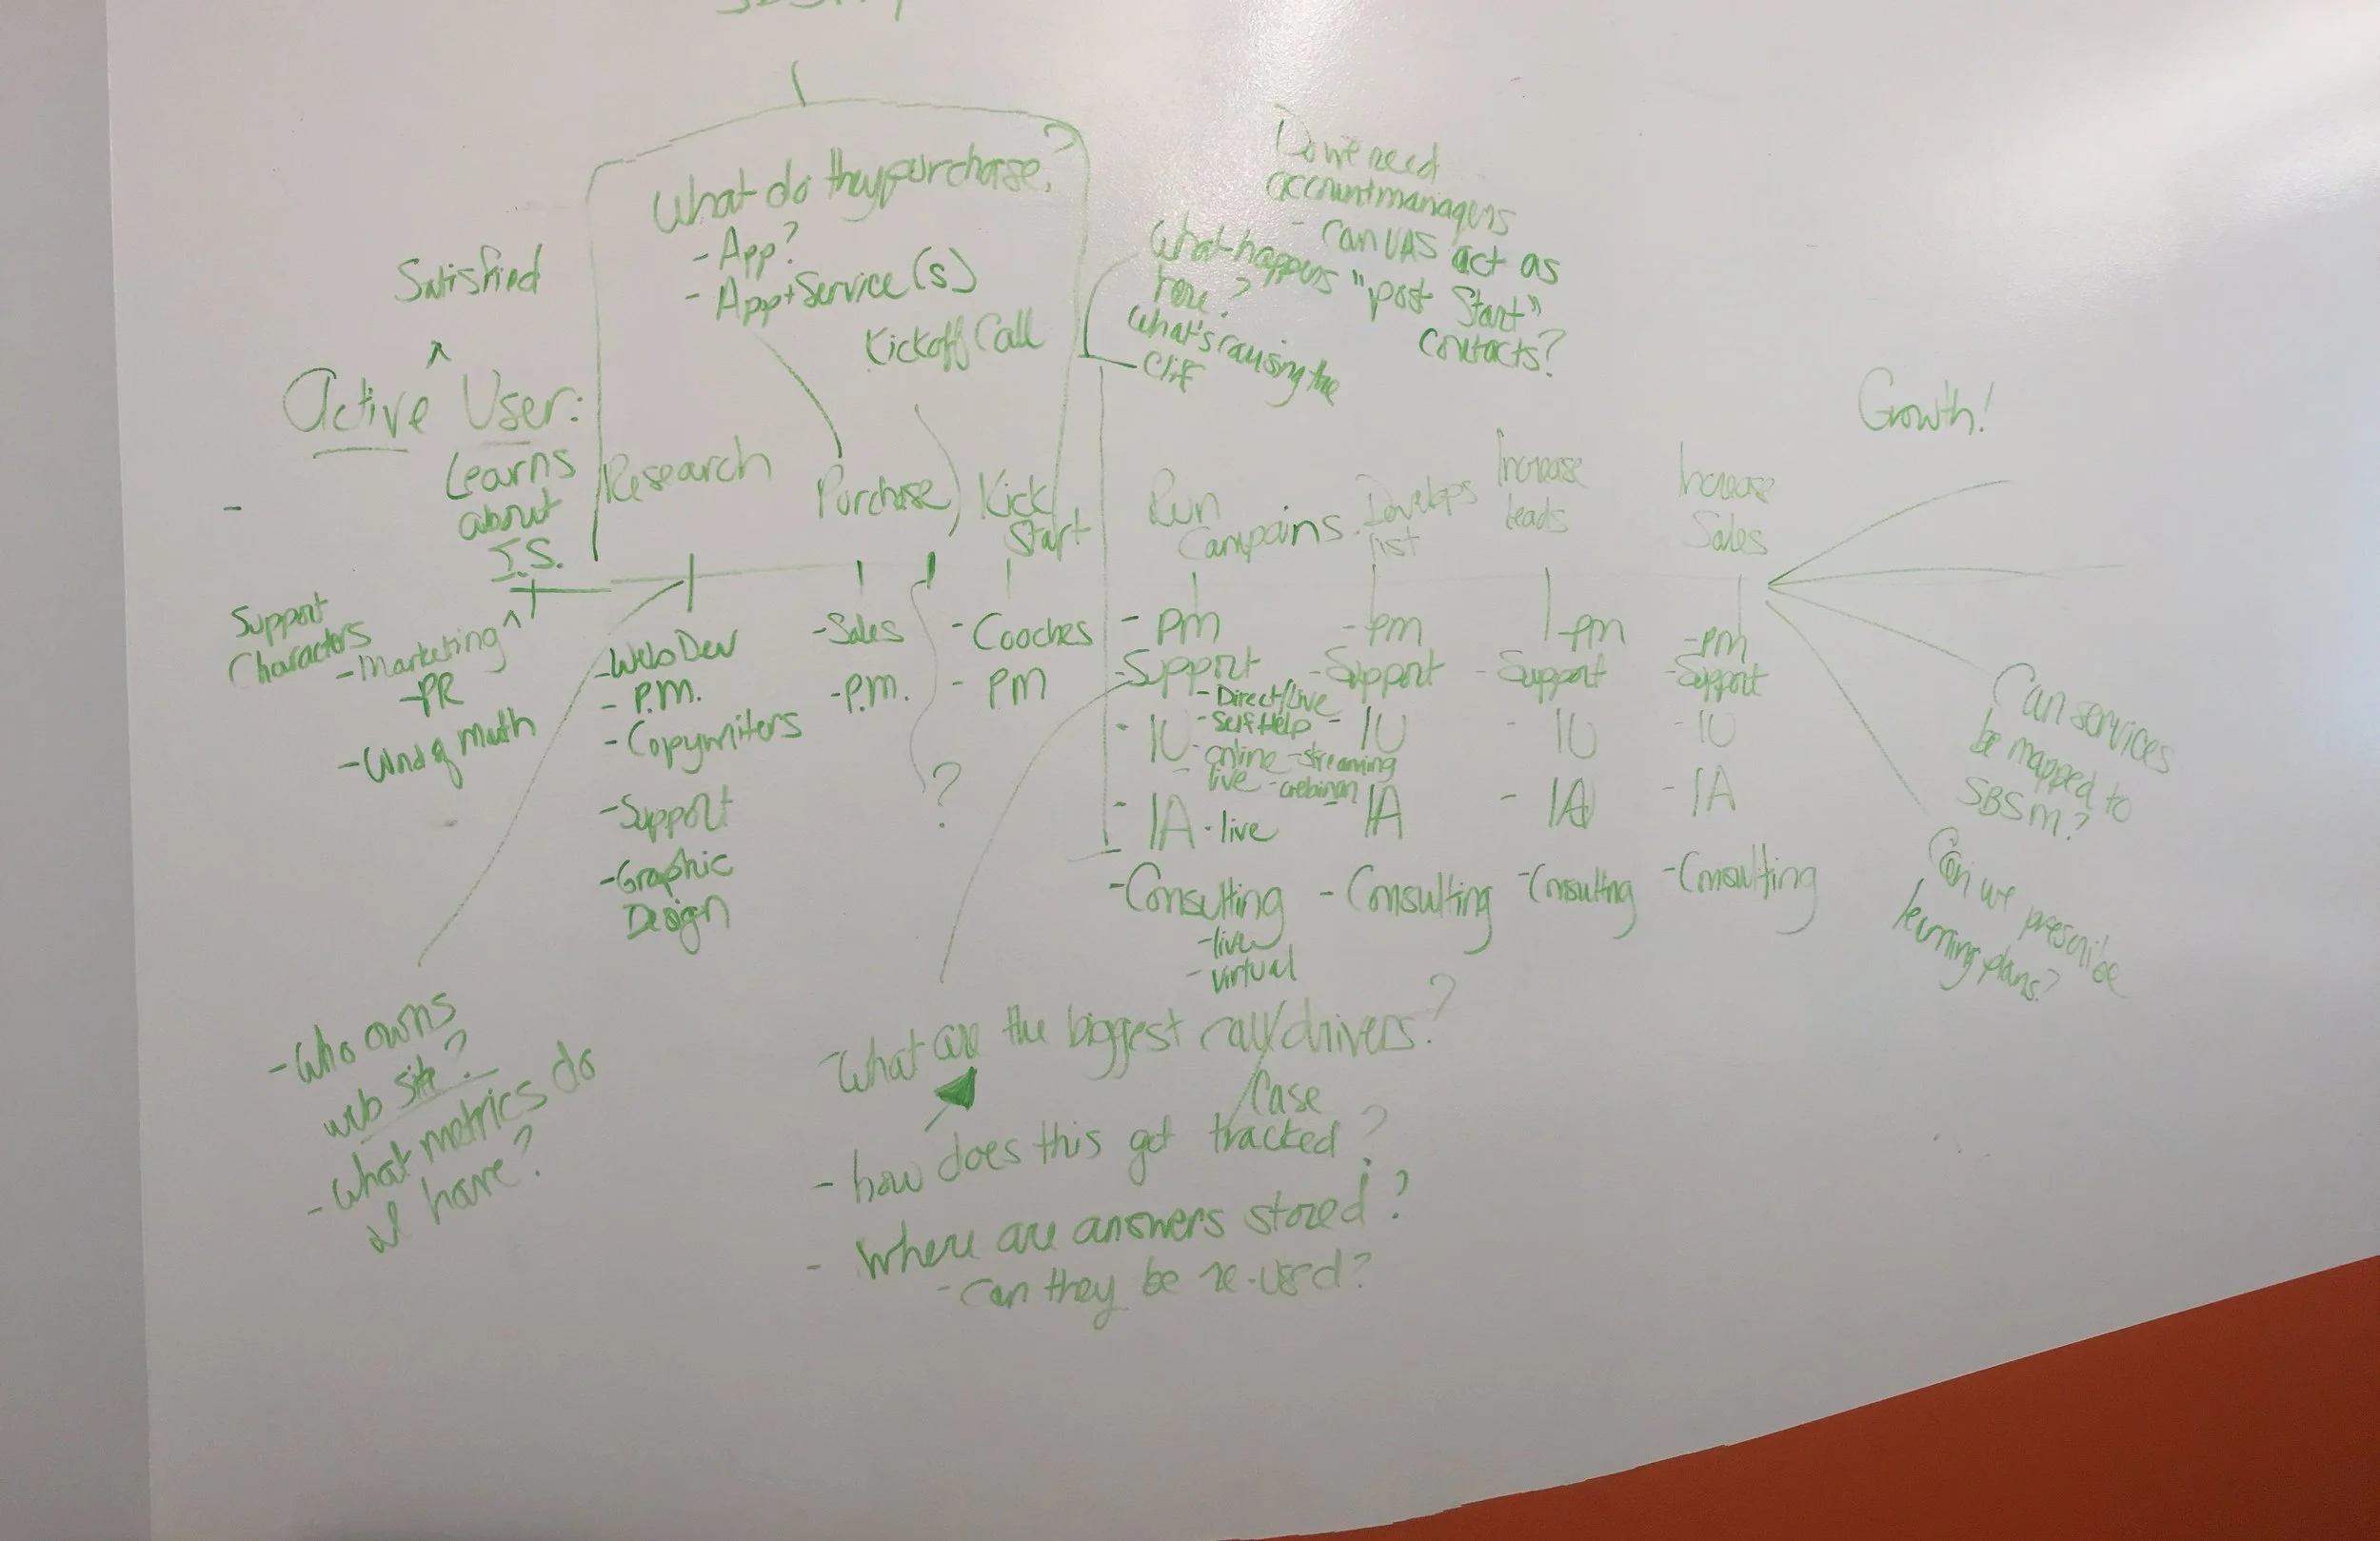 What do they purchase?
- App?
- App+Service(s)
Kickoff Call
Do we need
account managers
- Can UAS act as
"post Start"
contacts?
What happens
here?
What's causing the
Cliff
Satisfied
^
Active User:
-
Growth!
Learns
about
I.S.
Research
Purchase
Kick
Start
Run
Campains
Develops
list
Increase
leads
Increase
Sales
Support
Characters
- Marketing ^
- PR
- Word of Mouth
- Web Dev
- P.M.
- Copywriters
- Support
- Graphic
Design
- Sales
- P.M.
?
- Coaches
- PM
- PM
- Support
- Direct/Live
- Self Help
- IU
- online - streaming
- live - webinar
- IA - live
- Consulting
- live
- virtual
- PM
- Support
- IU
- IA
- Consulting
- PM
- Support
- IU
- IA
- Consulting
- PM
- Support
- IU
- IA
- Consulting
Can services
be mapped to
SBSM?
Can we prescribe
learning plans?
- Who owns
web site?
- What metrics do
I have?
- What are the biggest call/drivers?
Case
- how does this get tracked?
- Where are answers stored?
- Can they be re-used?